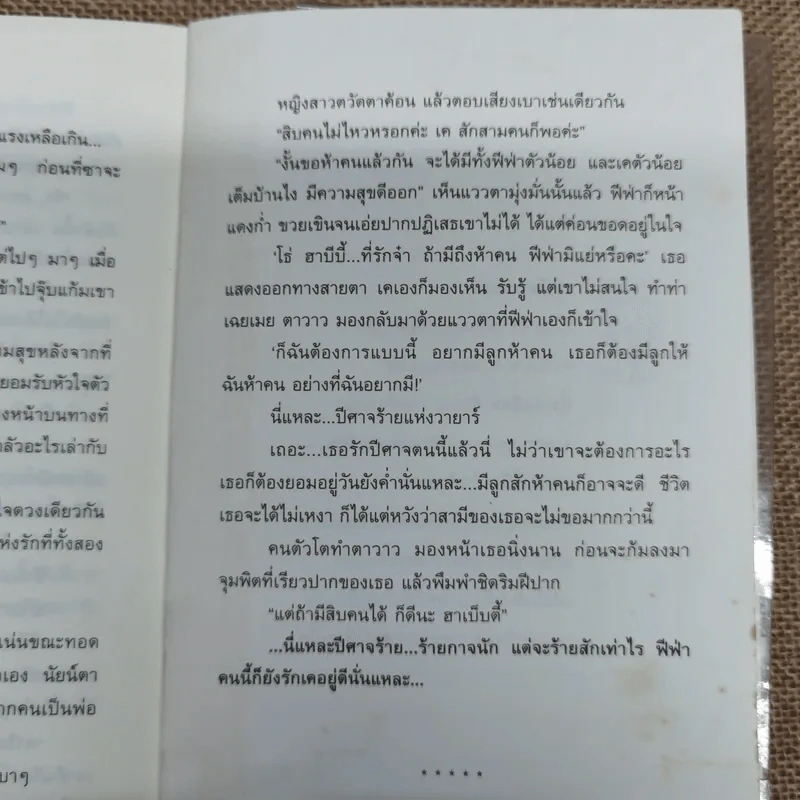 แรงเหลือเกิน...
มๆ ก่อนที่ซาจะ
"
ต่ไปๆ มาๆ เมื่อ
ข้าไปจุ๊บแก้มเขา
มสุขหลังจากที่
ยอมรับหัวใจตัว
งหน้าบนทางที่
ลัวอะไรเล่ากับ
ใจดวงเดียวกัน
ห่งรักที่ทั้งสอง
แน่นขณะทอด
เอง นัยน์ตา
ากคนเป็นพ่อ
บาๆ
หญิงสาวตวัดตาค้อน แล้วตอบเสียงเบาเช่นเดียวกัน
"สิบคนไม่ไหวหรอกค่ะ เค สักสามคนก็พอค่ะ"
"งั้นขอห้าคนแล้วกัน จะได้มีทั้งฟีฟ่าตัวน้อย และเคตัวน้อย
เต็มบ้านไง มีความสุขดีออก" เห็นแววตามุ่งมั่นนั้นแล้ว ฟีฟ่าก็หน้า
แดงก่ำ ขวยเขินจนเอ่ยปากปฏิเสธเขาไม่ได้ ได้แต่ค่อนขอดอยู่ในใจ
'โธ่ ฮาบีบี้...ที่รักจ๋า ถ้ามีถึงห้าคน ฟีฟ่ามิแย่หรือคะ' เธอ
แสดงออกทางสายตา เคเองก็มองเห็น รับรู้ แต่เขาไม่สนใจ ทำท่า
เฉยเมย ตาวาว มองกลับมาด้วยแววตาที่ฟีฟ่าเองก็เข้าใจ
'ก็ฉันต้องการแบบนี้ อยากมีลูกห้าคน เธอก็ต้องมีลูกให้
ฉันห้าคน อย่างที่ฉันอยากมี!'
นี่แหละ...ปีศาจร้ายแห่งวายาร์
เถอะ...เธอรักปีศาจตนนี้แล้วนี่ ไม่ว่าเขาจะต้องการอะไร
เธอก็ต้องยอมอยู่วันยังค่ำนั่นแหละ...มีลูกสักห้าคนก็อาจจะดี ชีวิต
เธอจะได้ไม่เหงา ก็ได้แต่หวังว่าสามีของเธอจะไม่ขอมากกว่านี้
คนตัวโตทำตาวาว มองหน้าเธอนิ่งนาน ก่อนจะก้มลงมา
จุมพิตที่เรียวปากของเธอ แล้วพึมพำชิดริมฝีปาก
"แต่ถ้ามีสิบคนได้ ก็ดีนะ ฮาเบ็บตี้"
...นี่แหละปีศาจร้าย...ร้ายกาจนัก แต่จะร้ายสักเท่าไร ฟีฟ่า
คนนี้ก็ยังรักเคอยู่ดีนั่นแหละ...
* * * * *